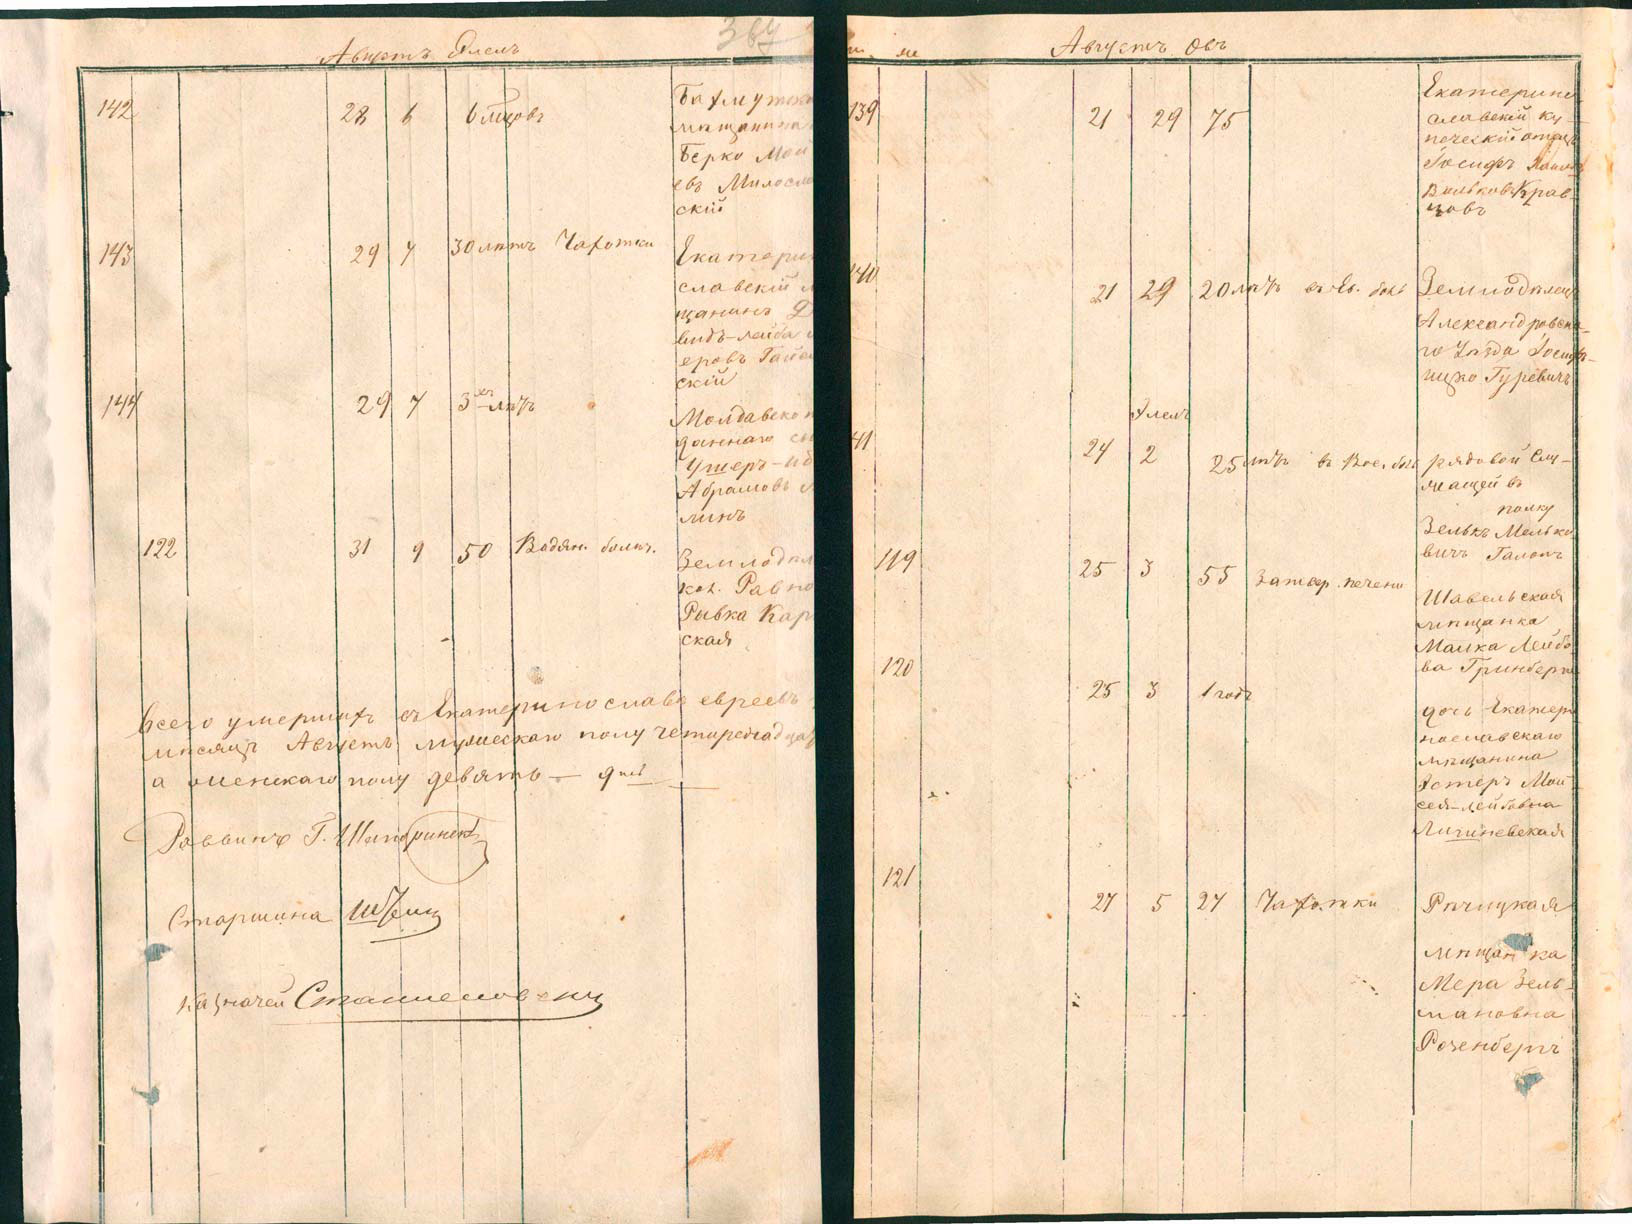 364
Августъ Элелъ
142 28 6 6 мѣцовъ Бахмутска
мѣщанина
Берко Мои
евъ Милосла
скій
143 29 7 30 лѣтъ Чахотки Екатерин
славскій м
щанинъ Д
видъ-Лейба
еровъ Гайс
скій
144 29 7 3хъ лѣтъ Молдавско п
даннаго сы
Ушеръ-
Абрамовъ
линъ
122 31 9 50 Водян. болѣз. Земледѣл
кол. Равно
Рывка Кар
ская
Всего умершихъ въ Екатеринославѣ евреевъ
мѣсяцъ Августъ мужескаго полу четырнадца
а женскаго полу девять — душъ
Раввинъ Г. Шапоринскій
Старшина
Казначей
м. ж. Августъ Овъ
139 21 29 75 Екатерино-
славскій ку-
печескій отецъ
Іосифъ
Вольковъ Крав-
цовъ
140 21 29 20 лѣтъ въ Ев. бол. Земледѣлец
Александровска-
го Уѣзда Іосифъ-
Ицко Гуревичъ
Элелъ
41 24 2 25 лѣтъ в Воен. бол. рядовой слу-
жащей въ
полку
Зелькъ Мелько-
вичъ Галопъ
119 25 3 55 Затвер. печени Шавельская
мѣщанка
Малка Лейбо-
ва Гринбергъ
120 25 3 1 годъ дочь Екатери
нославскаго
мѣщанина
Эстеръ Мои-
сея-Лейбовна
Личиневская
121 27 5 27 Чахотки Рѣчицкая
мѣщанка
Мера Зель-
мановна
Розенбергъ